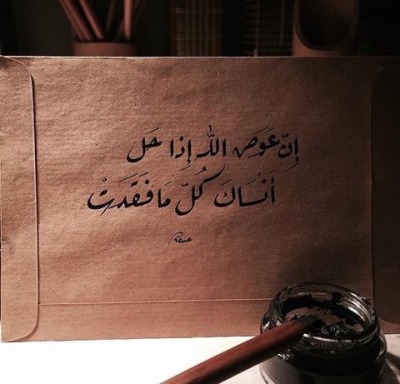 إنّ عوض الله إذا حل
أنْسَاكَ كُلّ مَا فَقَدَتْ